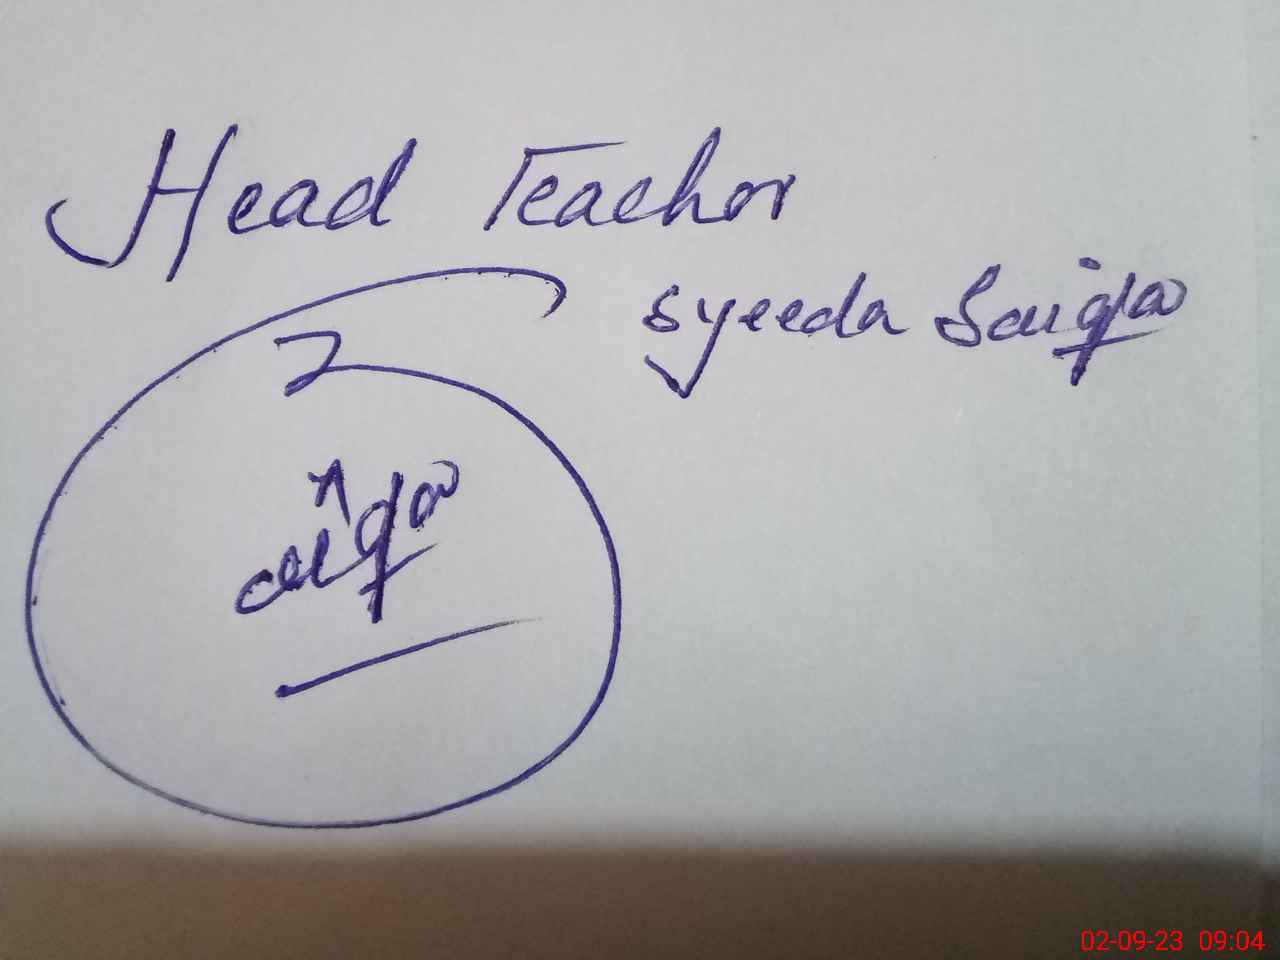 Head Teacher
Syeeda Saiqa
aiqa
02-09-23 09:04